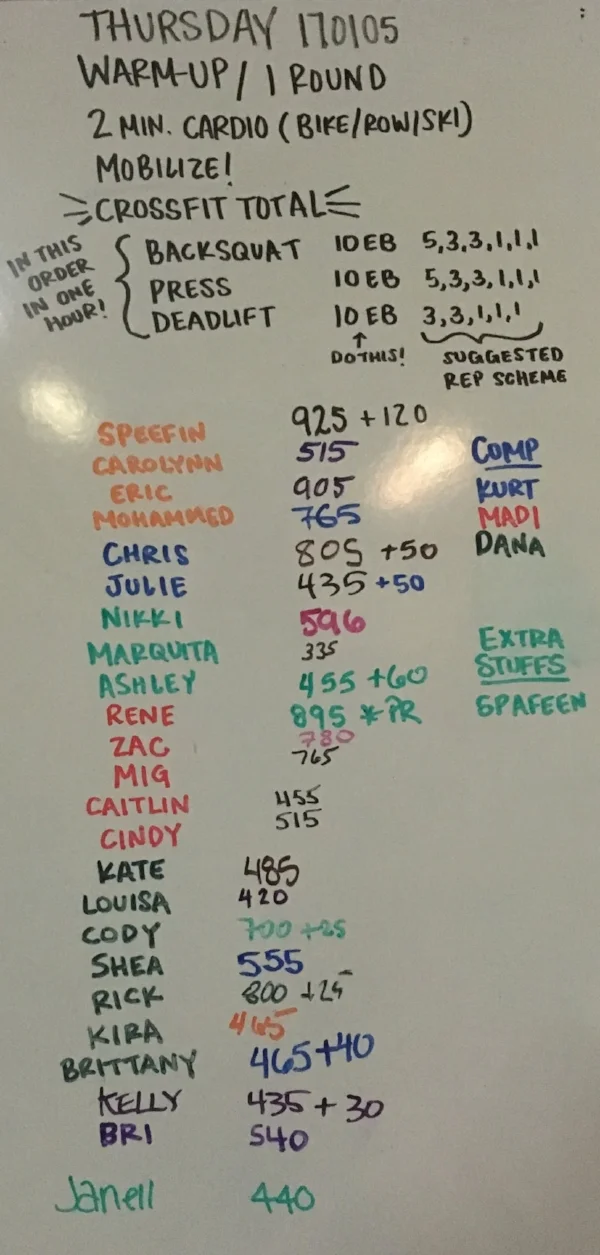 THURSDAY 170105
WARM-UP / 1 ROUND
2 MIN. CARDIO (BIKE/ROW/SKI)
MOBILIZE!
CROSSFIT TOTAL
IN THIS
ORDER
IN ONE
HOUR!
BACKSQUAT 10EB 5,3,3,1,1,1
PRESS 10EB 5,3,3,1,1,1
DEADLIFT 10EB 3,3,1,1,1
↑
DO THIS!
SUGGESTED
REP SCHEME
SPEEFIN 925 +120
CAROLYNN 515
ERIC 905
MOHAMMED 765
CHRIS 805 +50
JULIE 435 +50
NIKKI 596
MARQUITA 335
ASHLEY 455 +60
RENE 895 * PR
ZAC 780
MIG 765
CAITLIN 455
CINDY 515
KATE 485
LOUISA 420
CODY 700 +25
SHEA 555
RICK 800 +25
KIRA 465
BRITTANY 465+40
KELLY 435 + 30
BRI 540
Janell 440
COMP
KURT
MADI
DANA
EXTRA
STUFFS
SPAFEEN